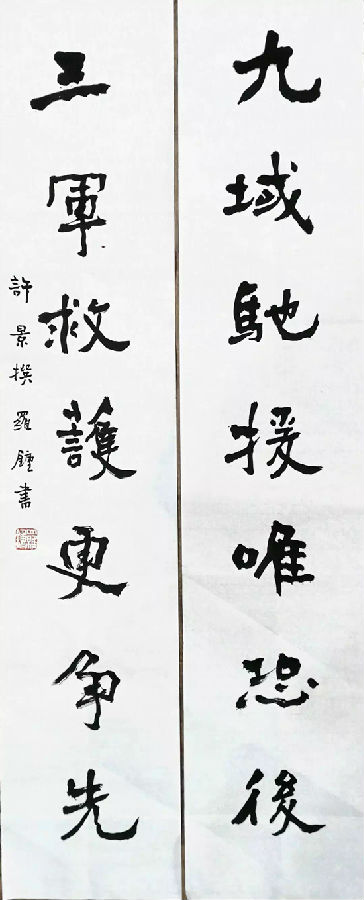 九域馳援唯恐後
三軍救護更爭先
許景撰羅鍾書